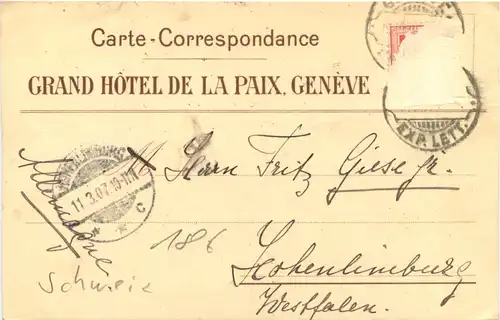 Carte-Correspondance
GRAND HÔTEL DE LA PAIX, GENÈVE
EXP. LETT.
11.3.07.10-11V
C
Allemagne
Herrn Fritz Giese jr.
186
Hohenlimburg
Westfalen.
Schweiz